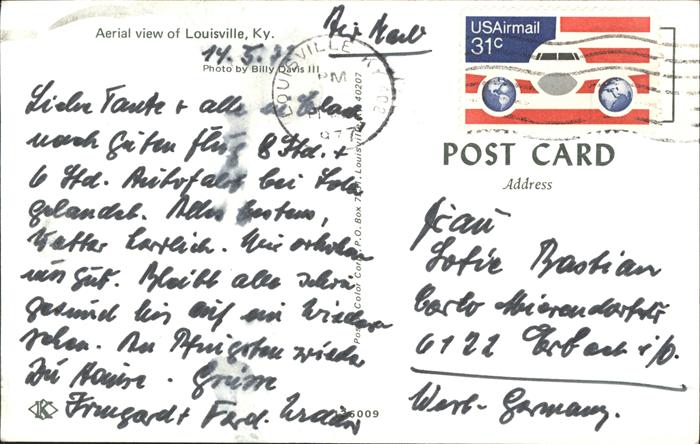 Aerial view of Louisville, Ky.
Air Mail
14. 5. 77
Photo by Billy Davis III
LOUISVILLE KY 402
PM
1977
USAirmail
31c
Liebe Tante + alle
nach guten Flug 8 Std. +
6 Std. Autofahrt bei
gelandet. Alles bestens,
Wetter herrlich. Wir erholen
uns gut. Bleibt alle schön
gesund bis auf ein Wieder
sehen. An Pfingsten wieder
zu Hause. Grüsse
Irmgard + Ferd.
Color Corp., P.O. Box 7 Louisville, 40207
K
5009
POST CARD
Address
Frau
Sofie Bastian
Carlo Mierendorfstr
6122 Erbach i/O.
West-Germany.